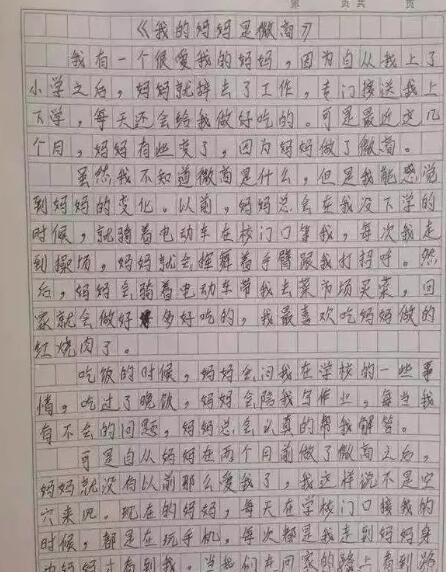 第 页 共 页
《我的妈妈是微商》
我有一个很爱我的妈妈，因为自从我上了
小学之后，妈妈就辞去了工作，专门接送我上
下学，每天还会给我做好吃的。可是最近这几
个月，妈妈有些变了，因为妈妈做了微商。
虽然我不知道微商是什么，但是我能感觉
到妈妈的变化。以前，妈妈总会在我没下学的
时候，就骑着电动车在校门口等我，每次我走
到操场，妈妈就会挥舞着手臂跟我打招呼。然
后，妈妈会骑着电动车带我去菜市场买菜，回
家就会做好多好吃的，我最喜欢吃妈妈做的
红烧肉了。
吃饭的时候，妈妈会问我在学校的一些事
情，吃过了晚饭，妈妈会陪我写作业，每当我
有不会的问题，妈妈总会认真的帮我解答。
可是自从妈妈在两个月前做了微商之后，
妈妈就没有以前那么爱我了，我这样说不是空
穴来风。现在的妈妈，每天在学校门口接我的
时候，都是在玩手机，每次都是我走到妈妈身
妈妈才看到我。当我们在回家的路上看到